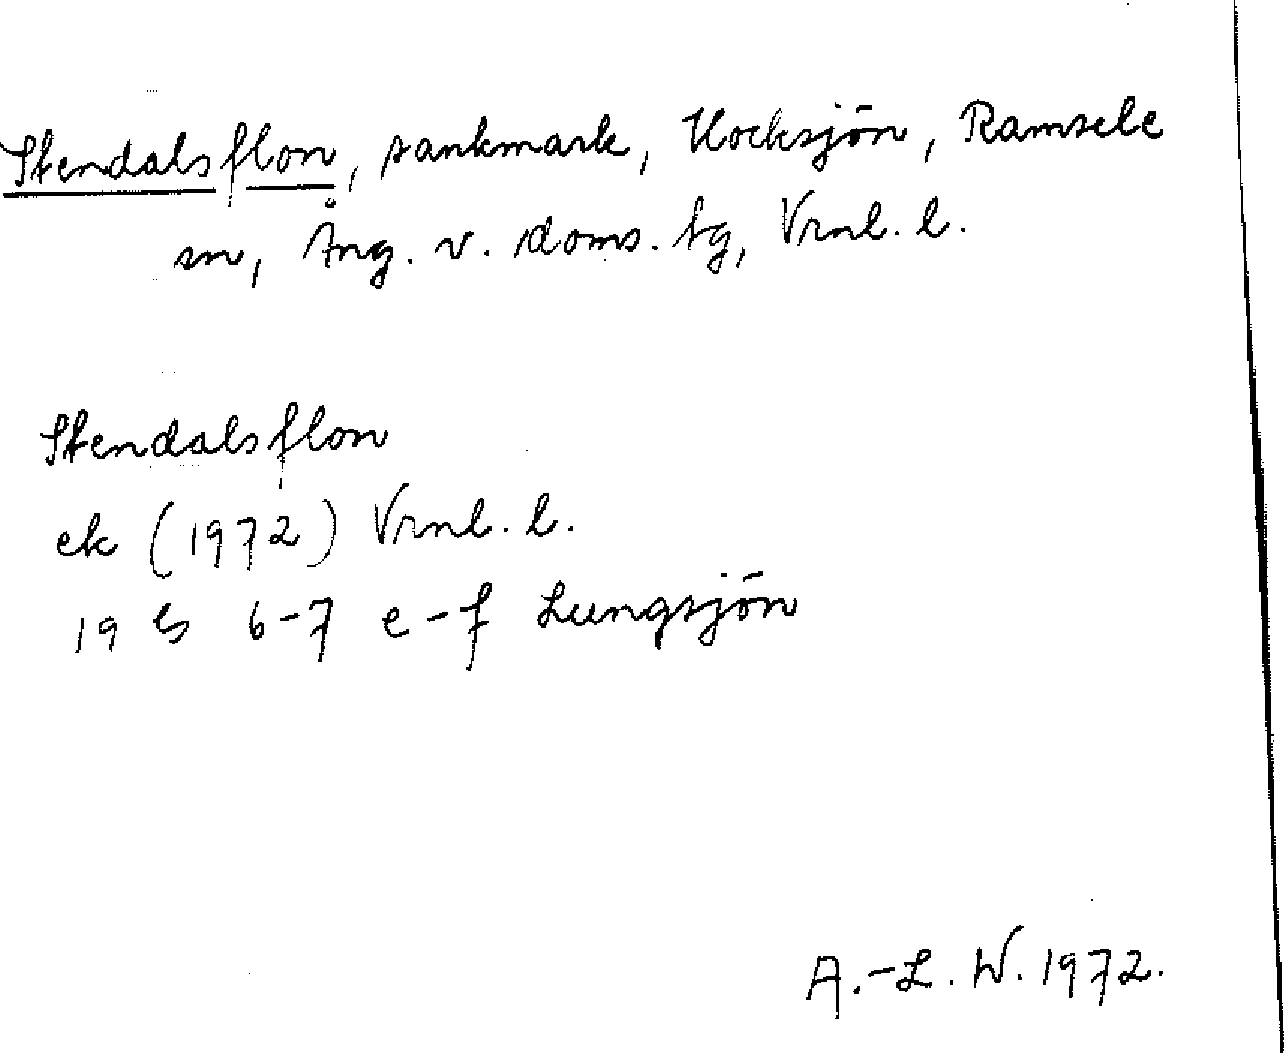 Stendalsflon, sankmark, Hocksjön, Ramsele
sn, Ång. v. doms. tg, Vrnl. l.
Stendalsflon
ek (1972) Vrnl. l.
19 G 6-7 e-f Lungsjön
A.-L. W. 1972.